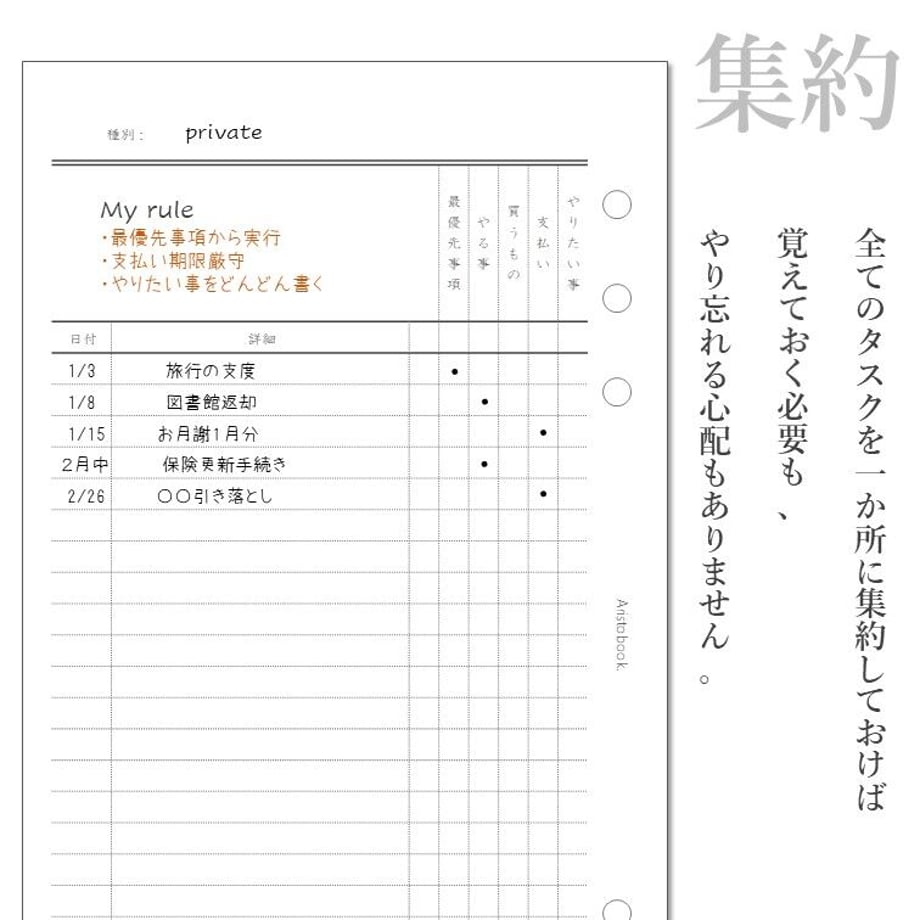 集約
全てのタスクを一か所に集約しておけば
覚えておく必要も、
やり忘れる心配もありません。
種別： private
My rule
・最優先事項から実行
・支払い期限厳守
・やりたい事をどんどん書く
最優先事項
やる事
買うもの
支払い
やりたい事
日付 詳細
1/3 旅行の支度 •
1/8 図書館返却 •
1/15 お月謝1月分 •
2月中 保険更新手続き •
2/26 〇〇引き落とし •
Aristobook.